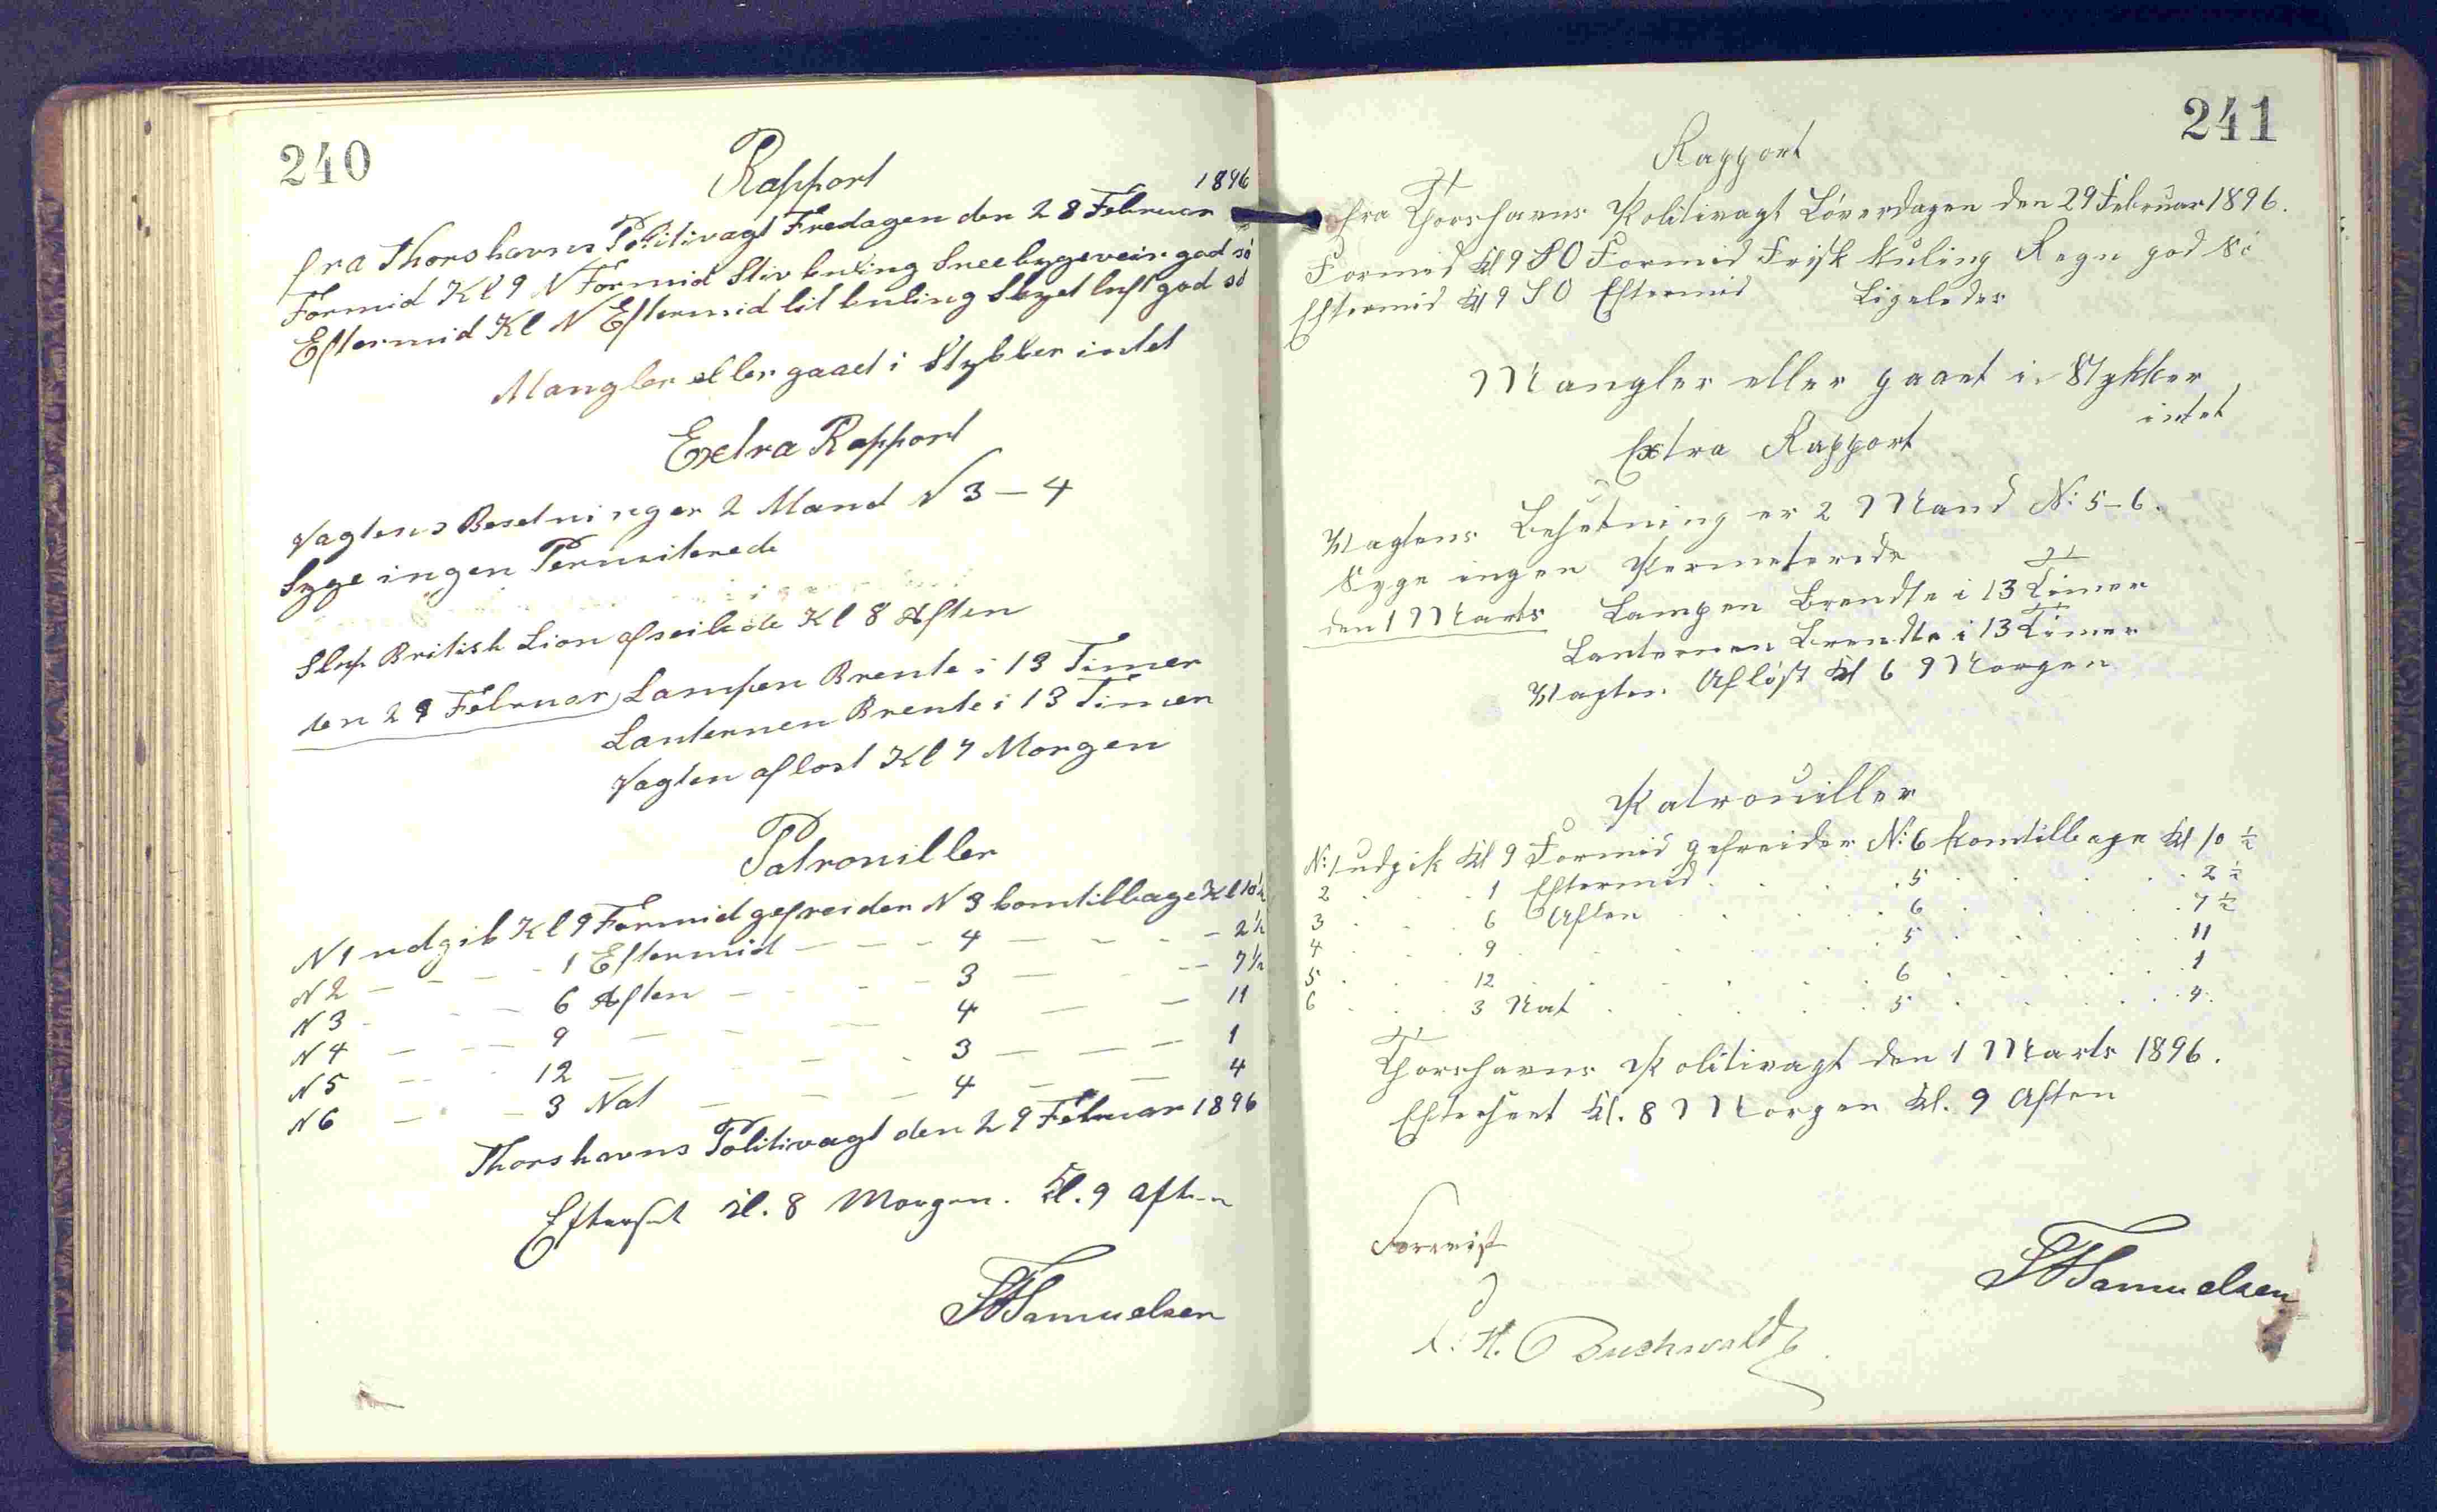 240
Rapport
1896
fra Thorshavns Politivagt Fredagen den 28 Februar
Formid Kl 9 N Formid Stiv kuling Sneebygeveir god sö
Eftermid Kl N Eftermid lit kuling Skyet luft god sö
Mangler eller gaaet i Stykker intet
Extra Rapport
Vagtens Besetning er 2 Mand N 3 — 4
Syge ingen Permiterede
Slup British Lion afseilede Kl 8 Aften
den 29 Februar Lampen Brente i 13 Timer
Lanternen Brente i 13 Timer
Vagten aflost Kl 7 Morgen
Patrouiller
N 1 udgik Kl 9 Formid gefreider N 3 komtilbage Kl 10½
N 2 — — - 1 Eftermid — — - 4 — - - - 2½
N 3 - - — 6 Aften — - - - 3 — - -- 7½
N 4 — — — 9 — — — 4 — — 11
N 5 — - 12 — - - 3 — — — 1
N 6 — - 3 Nat — — — 4 — — 4
Thorshavns Politivagt den 29 Februar 1896
Efterset Kl. 8 Morgen. Kl. 9 Aften
Samuelsen
241
Rapport
fra Thorshavns Politivagt Löverdagen den 29 Februar 1896.
Formid Kl 9 SO Formid Frisk kuling Regn god Sö
Eftermid Kl 9 SO Eftermid Ligeledes
Mangler eller gaaet i Stykker
intet
Extra Rapport
Vagtens Besetning er 2 Mand N: 5-6.
Syge ingen Permeterede
den 1 Marts Lampen Brendte i 13 Timer
Lanternen Brendte i 13 Timer
Vagten Aflöst Kl 6 Morgen
Patrouiller
N: 1 udgik Kl 9 Formid gefreider N: 6 komtilbage Kl 10 ½
2 . . 1 Eftermid . . . . 5 . . . . . 2 ½
3 . . 6 Aften . . . . 6 . . . . 7 ½
4 . . 9 . . . . . 5 . . . . 11
5 . . 12 . . . . . 6 . . . . . 1
6 . . 3 Nat . . . . . 5 . . . . 4.
Thorshavns Politivagt den 1 Marts 1896.
Efterseet Kl. 8 Morgen Kl. 9 Aften
Forevist
H. Buchwaldt
Samuelsen